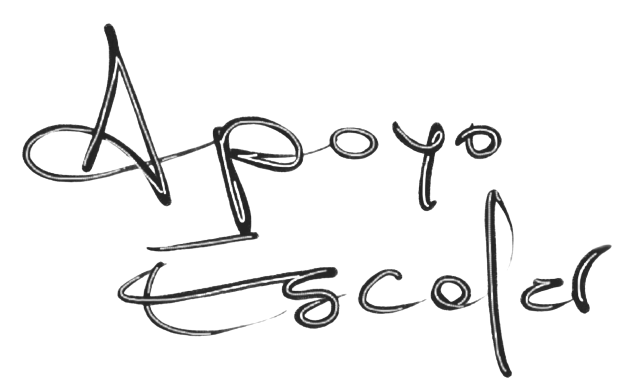 Apoyo
Escolar